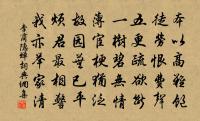 本以高難飽
徒勞恨費聲
五更疏欲斷
一樹碧無情
薄宦梗猶泛
故園蕪已平
煩君最相警
我亦舉家清
李商隱蟬詞典網集